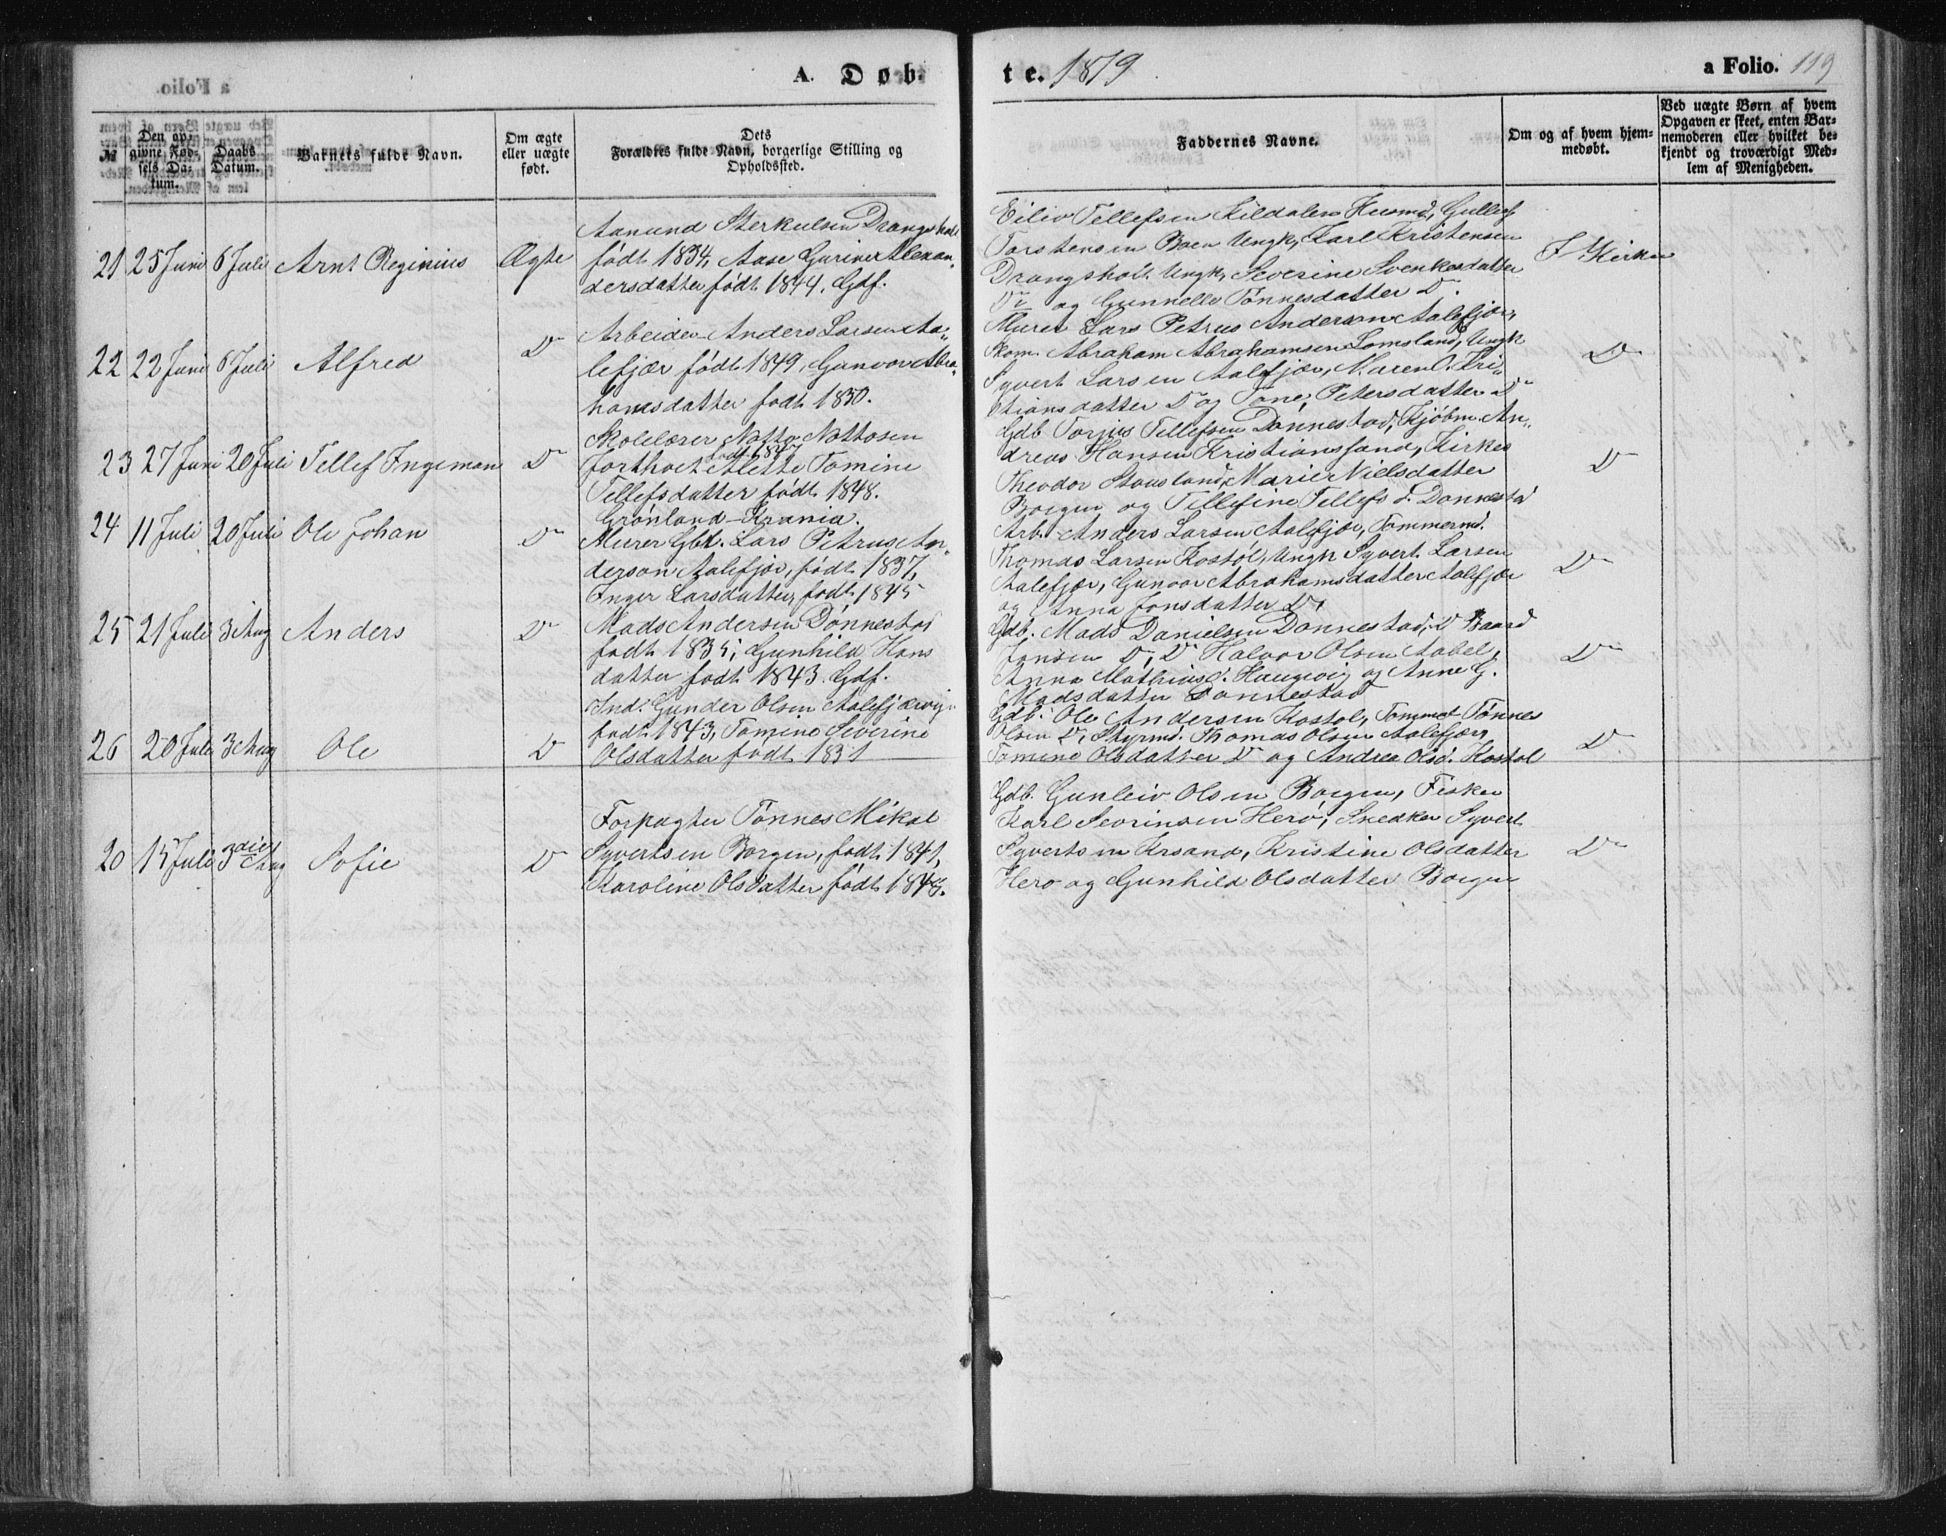 a Folio.
A. Døb
te. 1879
a Folio. 119
№
Den opgivne Fødsels Datum.
Daabs Datum.
Barnets fulde Navn.
Om ægte eller uægte født.
Dets Forældres fulde Navn, borgerlige Stilling og Opholdssted.
Faddernes Navne.
Om og af hvem hjemmedøbt.
Ved uægte Børn af hvem Opgaven er skeet, enten Barnemoderen eller hvilket bekjendt og troværdigt Medlem af Menigheden.
21 25 Juni 6 Juli Arnt Reginius Ægte
Aanund Sterkulsen Drangsholt
født 1834, Aase Gurine Alexan-
dersdatter født 1844. Gdf.
Eiliv Tellefsen Kildalen Husmd, Gullef
Torstensen Boen Ungk, Karl Kristensen
Drangsholt Ungk, Severine Svenkesdatter
Do og Gunnelle Tønnesdatter Do.
I Kirken
22 22 Juni 6 Juli Alfred Do
Arbeider Anders Larsen Aa-
lefjær født 1849, Gunvor Abra-
hamsdatter født 1850.
Murer Lars Petrus Andersen Aalefjær,
Skom. Abraham Abrahamsen Lomsland, Ungk
Syvert Larsen Aalefjær, Maren O. Kri-
stiansdatter Do og Tone Petersdatter Do
Do
23 27 Juni 20 Juli Tellef Ingeman Do
Skolelærer Notto Nottosen
Jortveit født 1847 Alette Tomine
Tellefsdatter født 1848.
Grønland-Krania.
Gdb Torjus Tellefsen Dønnestad, Kjøbm An-
dreas Hansen Kristianssand, Kirkes
Theodor Stousland, Marie Nielsdatter
Boegen og Tellefine Tellefs d. Dønnestad
Do
24 11 Juli 20 Juli Ole Johan Do
Murer Gbr. Lars Petrus An-
dersen Aalefjær, født 1837,
Inger Larsdatter, født 1845
Arb. Anders Larsen Aalefjær, Tømmermd.
Thomas Larsen Kostøl, Ungk Syvert Larsen
Aalefjær, Gunvor Abrahamsdatter Aalefjær
og Anna Jonsdatter Do,
Do
25 21 Juli 3 Aug Anders Do
Mads Andersen Dønnestad
født 1835; Gunhild Hans
datter født 1843. Gdf.
Gdb. Mads Danielsen Dønnestad, Do Baard
Jonsen Do, Do Halvor Olsen Aabel,
Anna Mathiasd. Haugevig og Anne G.
Madsdatter Dønnestad
Do
26 20 Juli 3 Aug Ole Do
Ind. Gunder Olsen Aalefjærvig
født 1843, Tomine Severine
Olsdatter født 1851
Gdb. Ole Andersen Kostøl, Tømmer Tønnes
Olsen Do, Styrmd. Thomas Olsen Aalefjær,
Tomine Olsdatter Do og Andrea Olsd. Kostøl
Do
20 15 Juli 3die Aug Sofie Do
Forpagter Tønnes Mikal
Syvertsen Boegen, født 1841,
Karoline Olsdatter født 1848.
Gdb. Gunleiv Olsen Boegen, Fisker
Karl Sevrinsen Herø, Snedker Syvert
Syvertsen Krsand, Kristine Olsdatter
Herø og Gunhild Olsdatter Boegen
Do